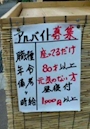 アルバイト募集
職種 座ってるだけ
年令 80才以上
備考 元気のない方
昼寝付
時給 1,000円以上